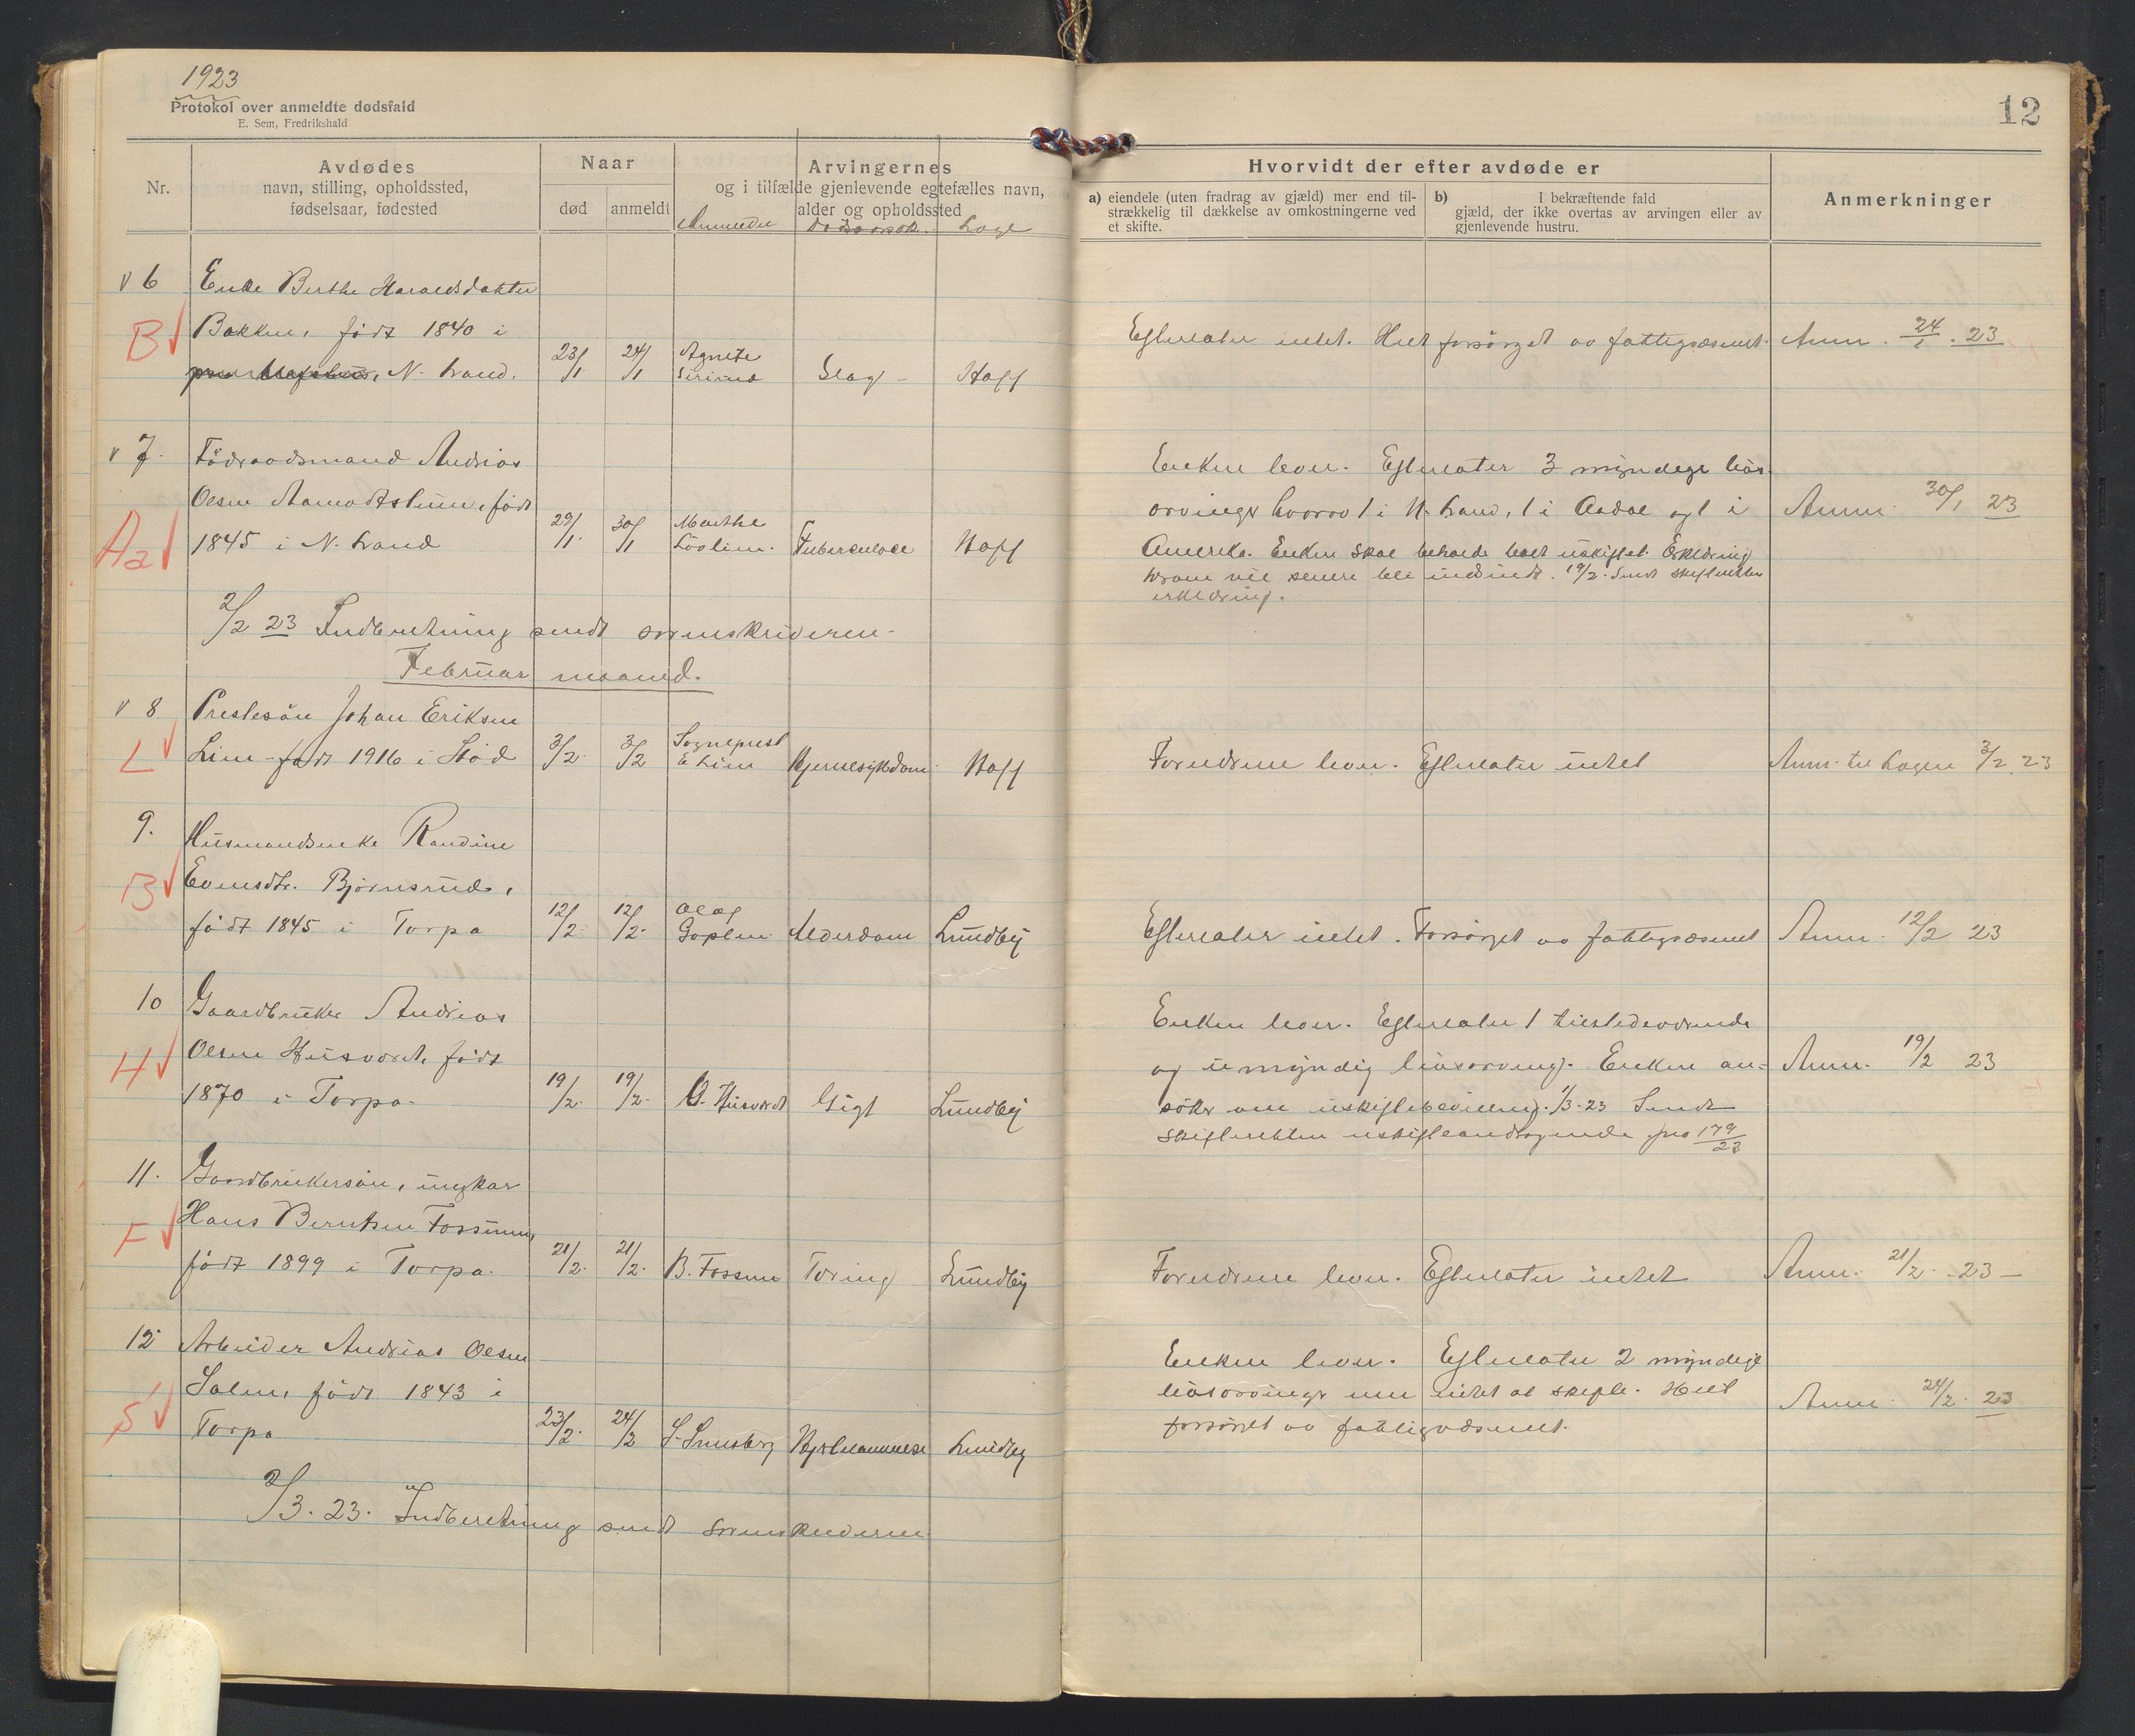 1923
Protokol over anmeldte dødsfald
E. Sem, Fredrikshald
12
Nr.
Avdødes
navn, stilling, opholdssted,
fødselsaar, fødested
Naar
død
anmeldt
Arvingernes
og i tilfælde gjenlevende egtefælles navn,
alder og opholdssted
Anmelder Dødsaarsak. Sogn
Hvorvidt der efter avdøde er
a) eiendele (uten fradrag av gjæld) mer end til-
strækkelig til dækkelse av omkostningerne ved
et skifte.
b) I bekræftende fald
gjæld, der ikke overtas av arvingen eller av
gjenlevende hustru.
Anmerkninger
v 6 Enke Berthe Haraldsdatter
B Bakken, født 1840 i
N. Land. 23/1 24/1 Agnete Slag Hoff
Efterlater intet. Helt forsørget av fattigvæsenet. Anm. 24/1. 23
v 7. Födraadsmand Andreas
Olsen Aamodtstuen, født
Aa 1845 i N. Land 29/1. 30/1 Marthe Tuberculose Hoff
Enken lever. Efterlater 3 myndige livs-
arvinger hvorav 1 i N. Land, 1 i Aadal og 1 i Anm. 30/1 23
Amerika. Enken skal behalde boet uskiftet. Erklæring
herom vil senere bli indsendt. 19/2. Sendt skifteretten
erklæring.
2/2 23 Indberetning sendt sorenskriveren.
Februar maaned.
v 8 Prestesön Johan Eriksen
L Lien født 1916 i Stod 3/2. 3/2 Sogneprest E Lien Hjernesykdom Hoff
Forældrene lever. Efterlater intet Anm. til Lagen 3/2 23
9. Husmandsenke Randine
B Evensdtr. Bjørnsrud,
født 1845 i Torpa 12/2 12/2. Olaf Goplen Alderdom Lundby
Efterlater intet. Forsörget av fattigvæsenet Anm. 12/2 23
10 Gaardbruker Andreas
H Olsen Husvoret, født
1870 i Torpa. 19/2. 19/2. O. Husvoret Gigt Lundby
Enken lever. Efterlater 1 tilstedeværende
og umyndig livsarving. Enken an- Anm. 19/2 23
söker om uskiftebevilling. 1/3-23 Sendt
skifteretten uskifteandragende jno 179/23
11. Gaardbrukersön, ungkar
F Hans Berntsen Fossum,
født 1899 i Torpa. 21/2. 21/2. B. Fossum Tæring Lundby
Forældrene lever. Efterlater intet Anm. 21/2. 23
12 Arbeider Andreas Olsen
S Salen, født 1843 i
Torpa 23/2. 24/2 Hjertelammelse Lundby
Enken lever. Efterlater 2 myndige
livsarvinger men intet at skifte. Helt Anm. 24/2. 23
forsörget av fattigvæsenet.
2/3. 23. Indberetning sendt sorenskriveren